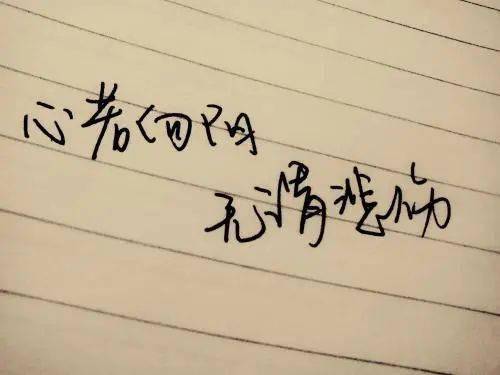 心若向阳
无情悲伤